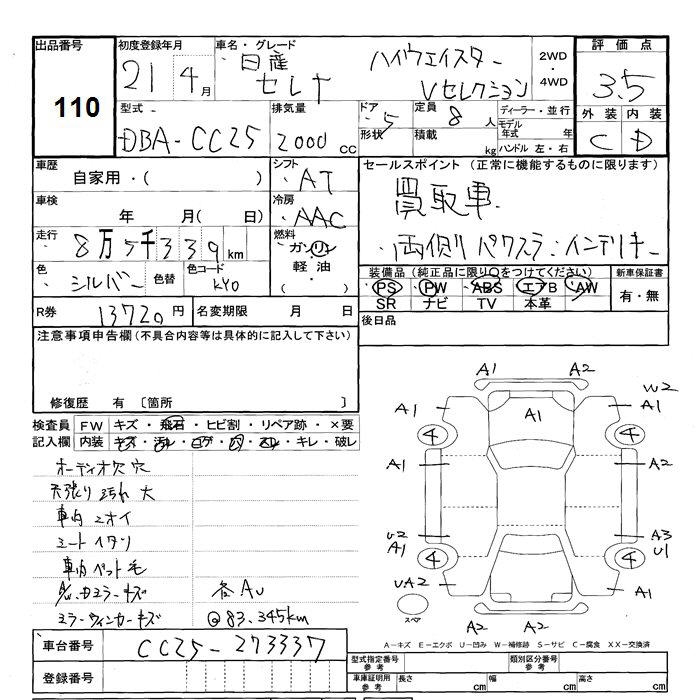 出品番号 初度登録年月 車名・グレード 評価点
110
21 4月 日産 セレナ ハイウェイスター Vセレクション 2WD・4WD 3.5
型式 排気量 ドア 定員 ディーラー・並行 外装 内装
DBA-CC25 2000cc 5 8人 モデル年式 年 C D
形状 積載 kg ハンドル 左・右
車歴 自家用・( ) シフト AT セールスポイント(正常に機能するものに限ります)
車検 年 月(日) 冷房 AAC 買取車.
走行 8万5千339km 燃料 ガソリン・軽油・( ) 両側パワスラ.インテリキー
色 シルバー 色替 色コード KY0 装備品(純正品に限り○をつけてください) 新車保証書
PS PW ABS エアB AW 有・無
SR ナビ TV 本革
R券 13720円 名変期限 月 日 後日品
注意事項申告欄(不具合内容等は具体的に記入して下さい)
修復歴 有 〔箇所 〕
検査員 FW キズ・飛石・ヒビ割・リペア跡・×要
記入欄 内装 キズ・汚レ・コゲ・穴・スレ・キレ・破レ
オーディオ欠 穴
天張り汚れ 大
車内ニオイ
シートヘタリ
車内ペット毛
A/Cカミラーキズ 各AU
ミラーウィンカーキズ @83.345km
A1 A2
A1 A1 A2 W2
4 4
A1 A2
U2 A1 A3 U1
4 4
UA2 A1
スペア
A2 A2
A-キズ E-エクボ U-凹み W-補修跡 S-サビ C-腐食 XX-交換済
車台番号 CC25-273337
登録番号
型式指定番号 参考 類別区分番号 参考
車庫証明用 参考 長さ cm 幅 cm 高さ cm